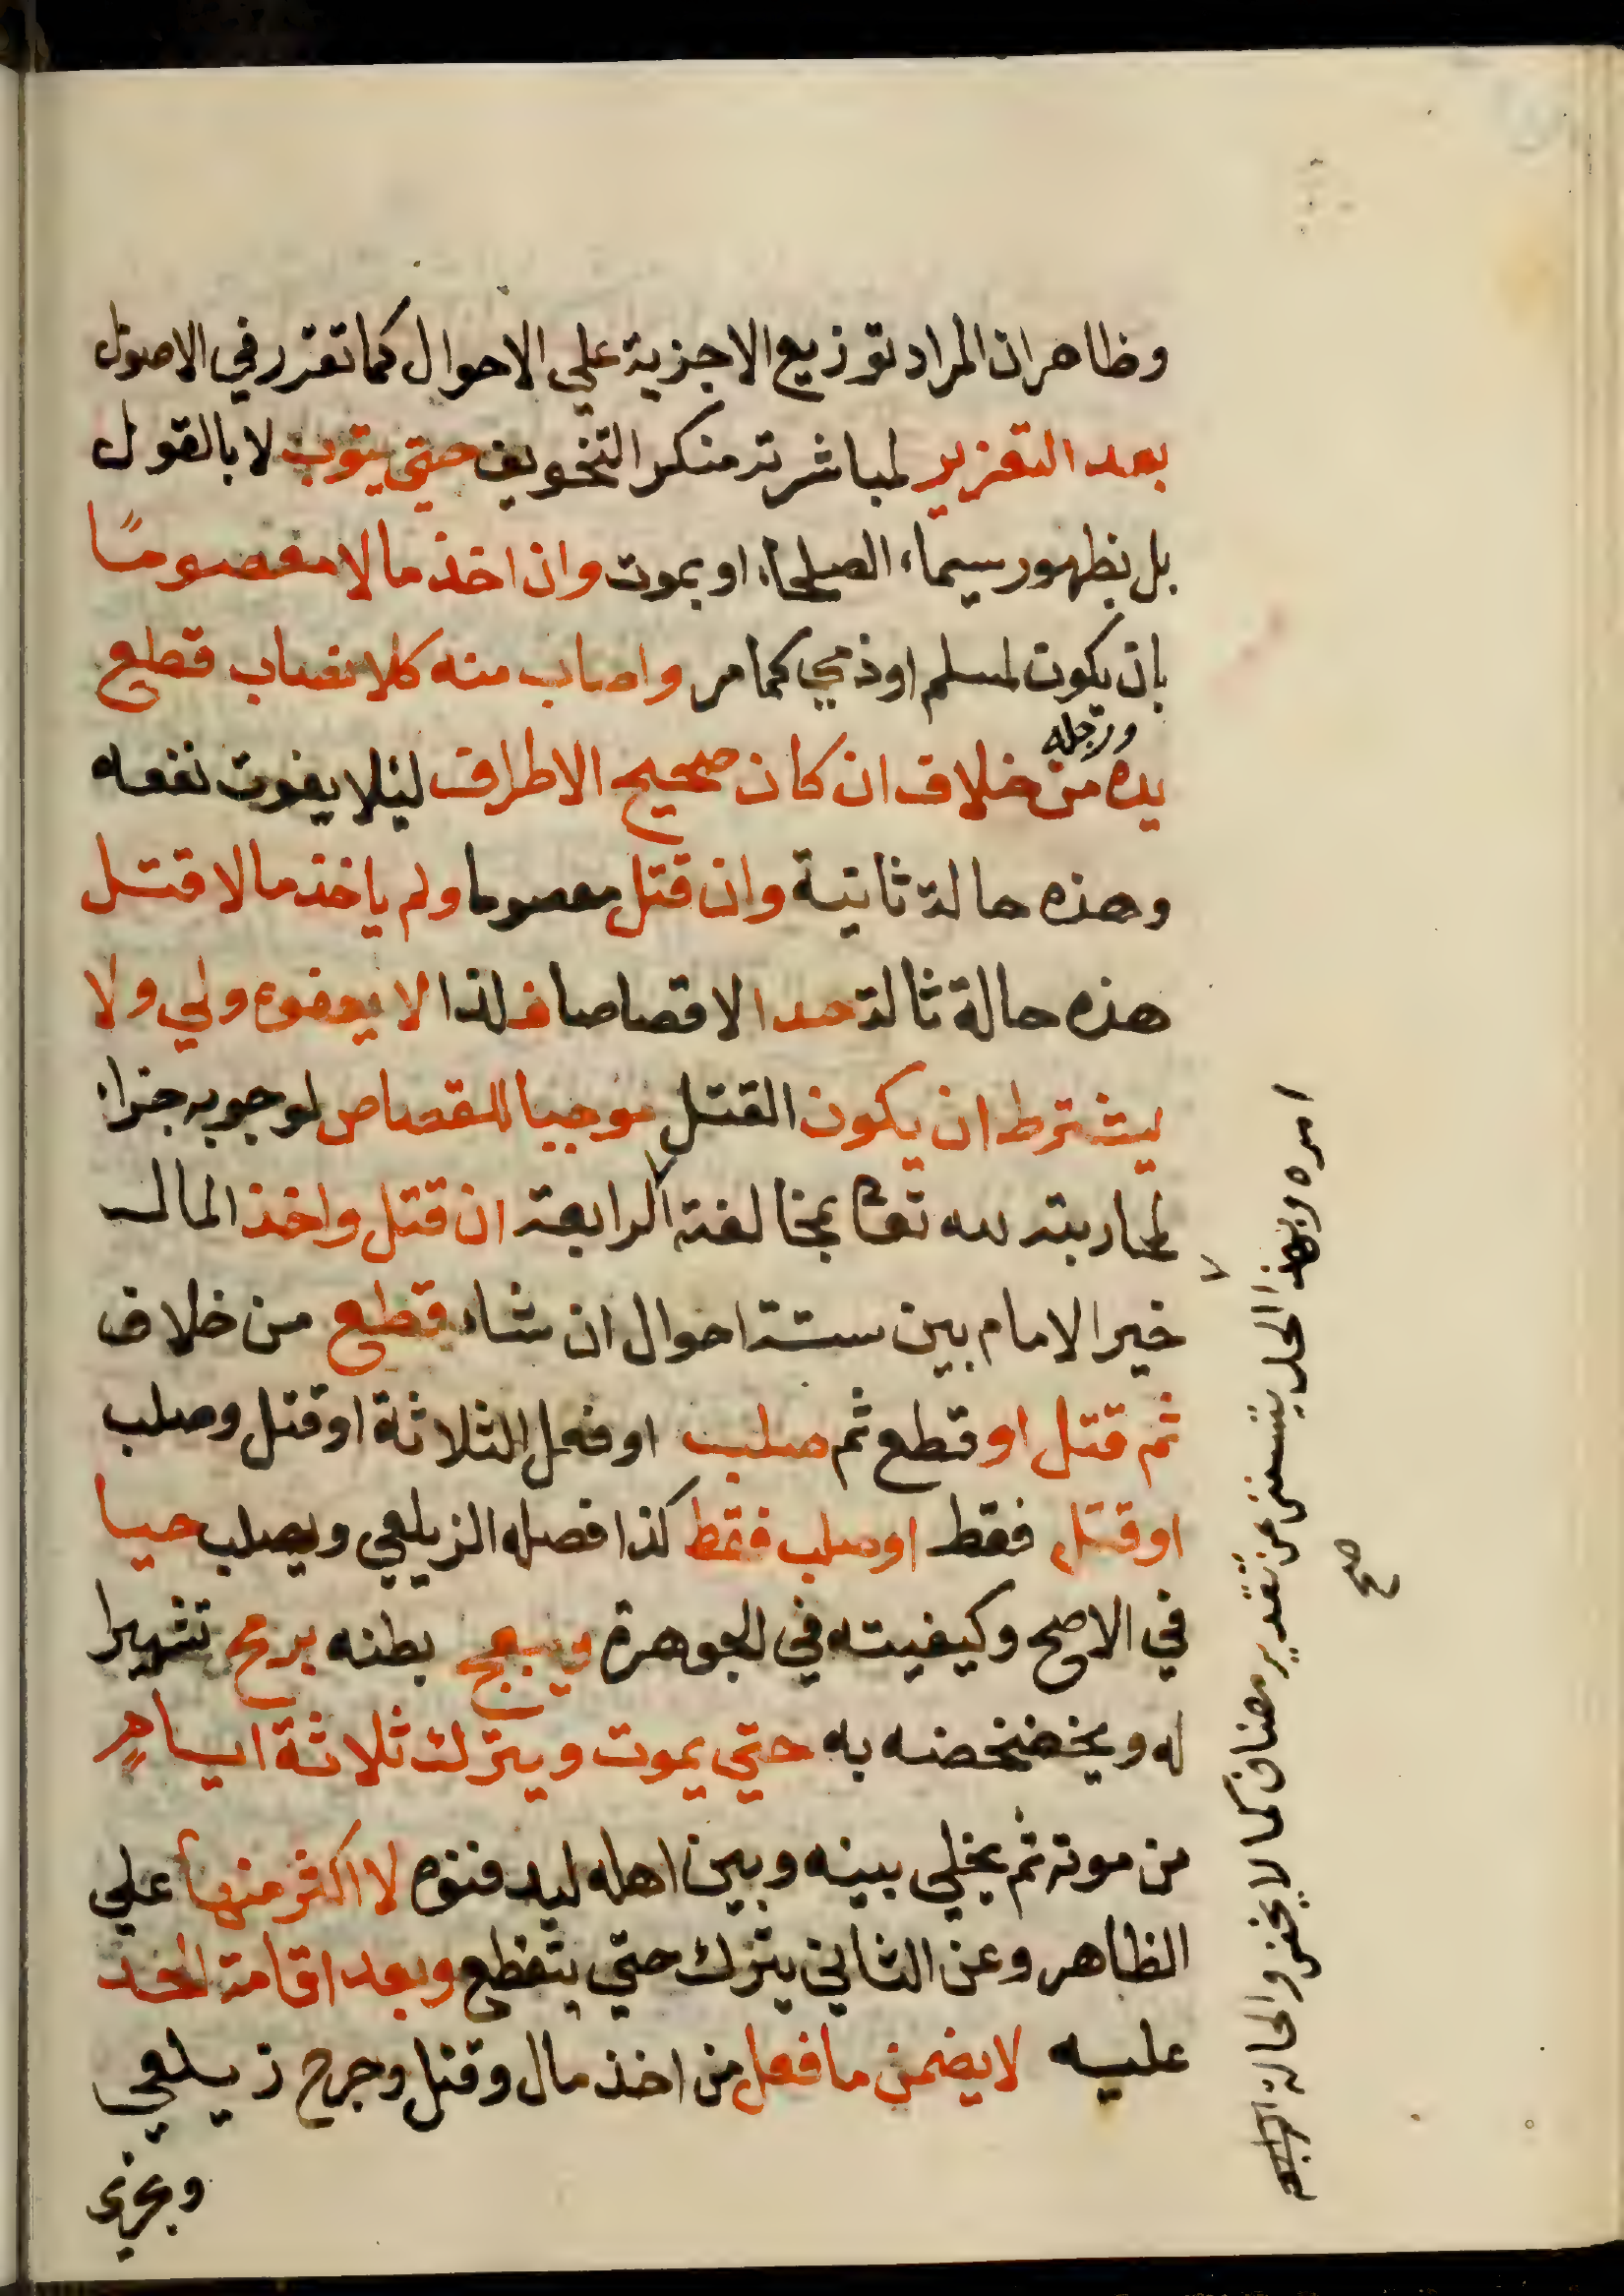 وظاهر ان المراد توزيع الاجزية علي الاحوال كما تقرر في الاصول
بعد التعزير لمباشرته منكر التخويف حتي يتوب لا بالقول
بل بظهور سيماء الصلحاء او بموت وان اخذ مالا معصومًا
بان يكون لمسلم او ذمي كما مر واصاب منه كلا نصاب قطع
ورجله
يده من خلاف ان كان صحيح الاطراف ليلا يفوت نفعه
وهذه حالة ثانية وان قتل معصوما ولم ياخذ مالا قتل
هذه حالة ثالثة حدا لا قصاصا فلذا لا يعفوه ولي ولا
يشترط ان يكون القتل موجبا للقصاص لوجوبه جزاء
لمحاربته لله تعا بمخالفة الرابعة ان قتل واخذ المال
خير الامام بين ستة احوال ان شاء قطع من خلاف
ثم قتل او قطع ثم صلب او فعل الثلاثة او قتل وصلب
او قتل فقط او صلب فقط كذا فصله الزيلعي ويصلب حيا
في الاصح وكيفيته في الجوهرة ويبعج بطنه برمح تشهيرا
له ويخضخضه به حتي يموت ويترك ثلاثة ايام
من موته ثم يخلي بينه وبين اهله ليدفنوه لا اكثر منها علي
الظاهر وعن الثاني يترك حتي يتقطع وبعد اقامة الحد
عليه لا يضمن ما فعل من اخذ مال وقتل وجرح زيلعي
وتجري
امره وبهذا الحل يستغنى عن تقدير مضاف كما لا يخفى والحالة
صح